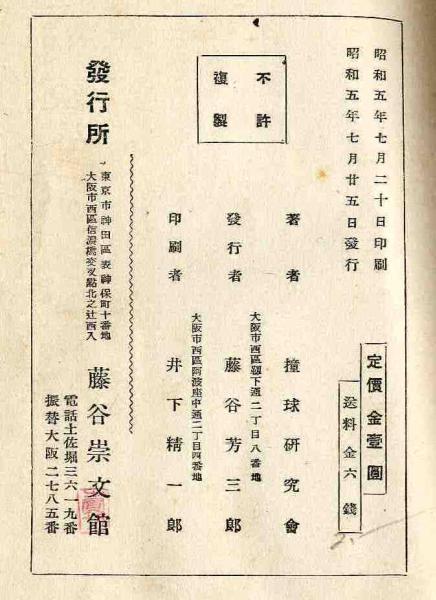 昭和五年七月二十日印刷
昭和五年七月廿五日發行
定價金壹圓
送料金六錢
不許
複製
著者 撞球研究會
大阪市西區靱下通二丁目八番地
發行者 藤谷芳三郎
大阪市西區阿波座中通二丁目四番地
印刷者 井下精一郎
發行所
東京市神田區表神保町十番地
大阪市西區信濃橋交叉點北之辻西入
藤谷崇文館
電話土佐堀三六一九番
振替大阪二七八五番